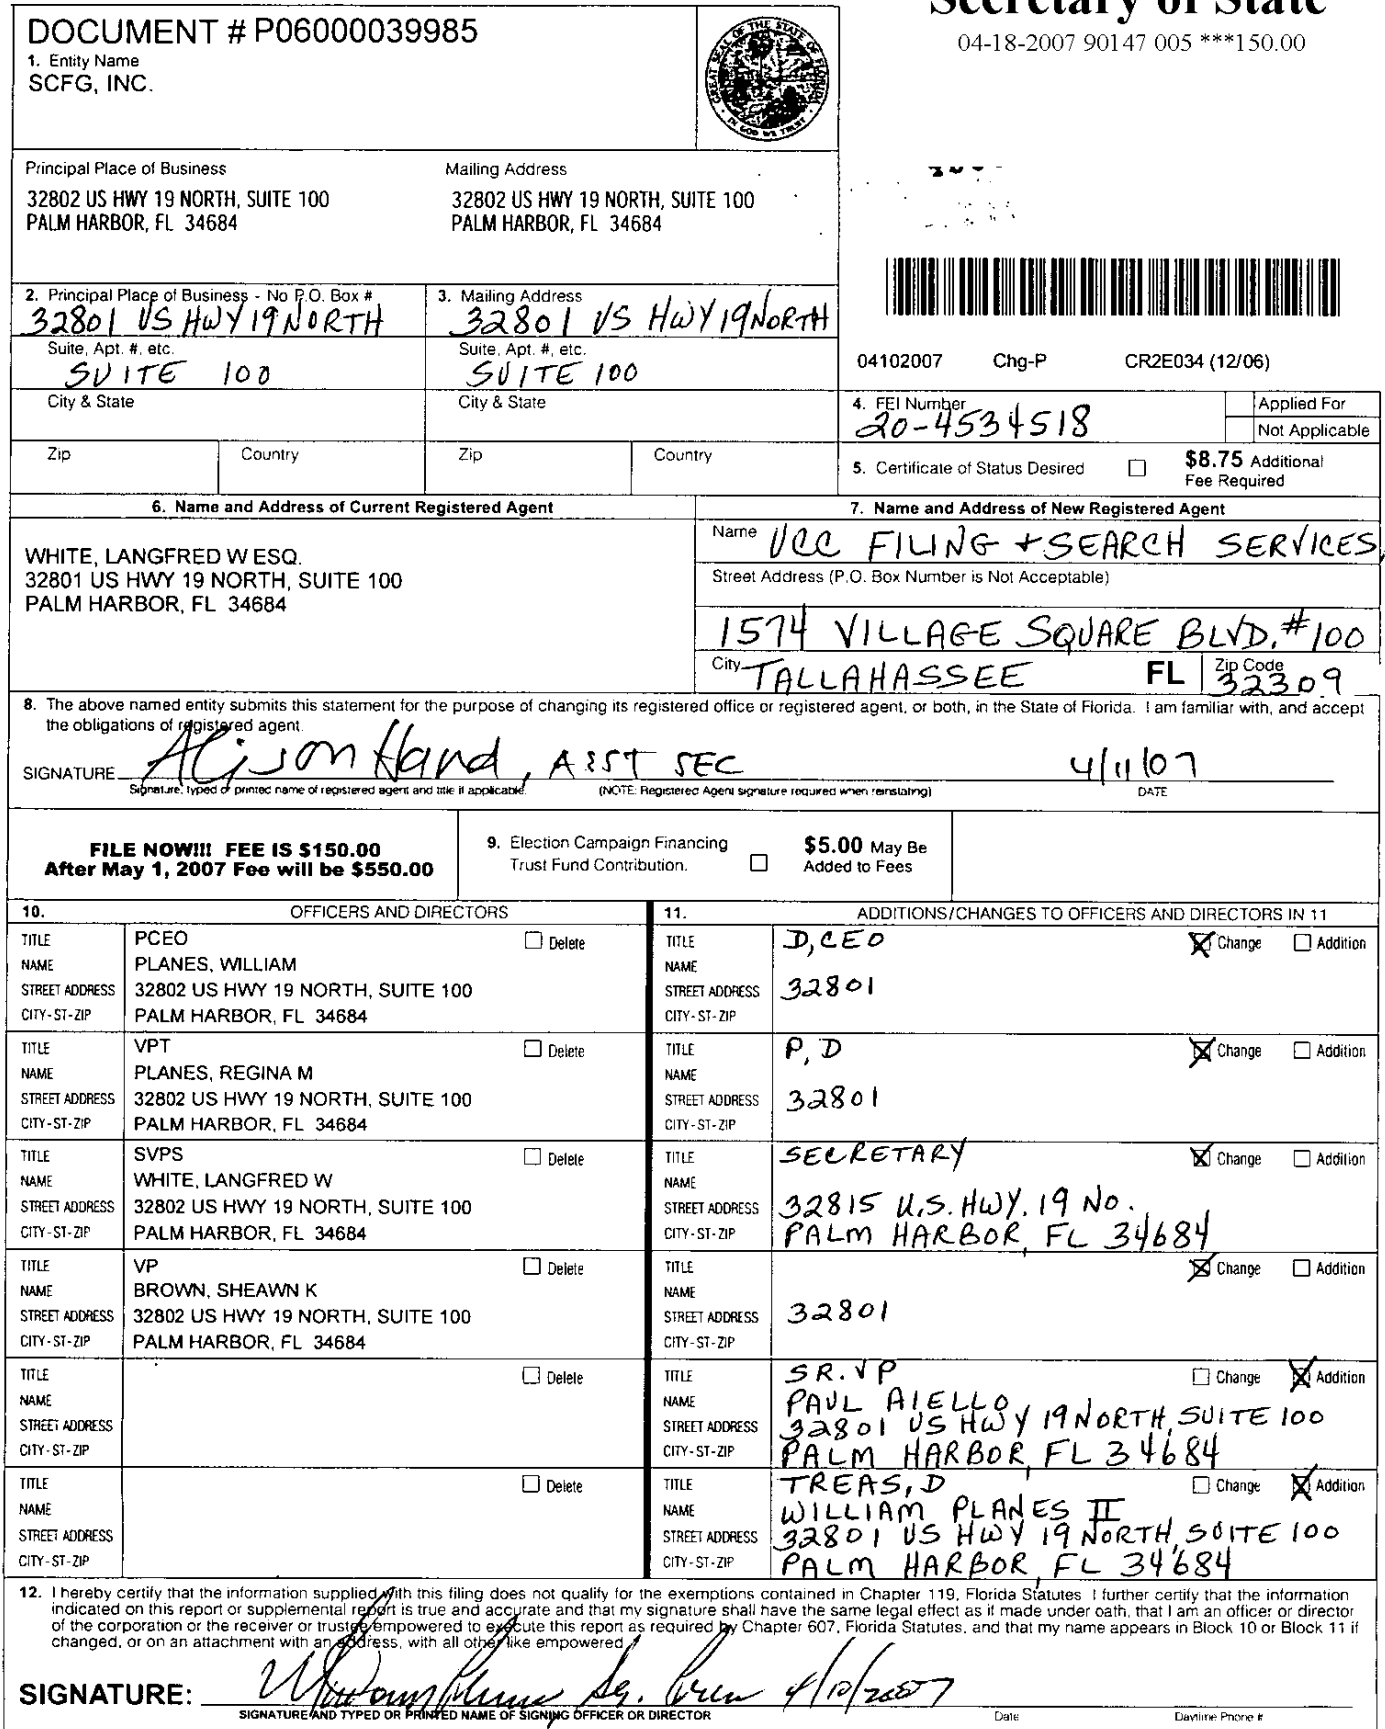 Secretary of State
04-18-2007 90147 005 ***150.00
DOCUMENT # P06000039985
1. Entity Name
SCFG, INC.
GREAT SEAL OF THE STATE OF FLORIDA
IN GOD WE TRUST
Principal Place of Business
32802 US HWY 19 NORTH, SUITE 100
PALM HARBOR, FL 34684
Mailing Address
32802 US HWY 19 NORTH, SUITE 100
PALM HARBOR, FL 34684
2. Principal Place of Business - No P.O. Box #
32801 US HWY 19 NORTH
Suite, Apt. #, etc.
SUITE 100
City & State
Zip Country
3. Mailing Address
32801 US HWY 19 NORTH
Suite, Apt. #, etc.
SUITE 100
City & State
Zip Country
04102007 Chg-P CR2E034 (12/06)
4. FEI Number
20-4534518
Applied For
Not Applicable
5. Certificate of Status Desired
$8.75 Additional
Fee Required
6. Name and Address of Current Registered Agent
WHITE, LANGFRED W ESQ.
32801 US HWY 19 NORTH, SUITE 100
PALM HARBOR, FL 34684
7. Name and Address of New Registered Agent
Name UCC FILING + SEARCH SERVICES,
Street Address (P.O. Box Number is Not Acceptable)
1574 VILLAGE SQUARE BLVD. #100
City TALLAHASSEE FL Zip Code 32309
8. The above named entity submits this statement for the purpose of changing its registered office or registered agent, or both, in the State of Florida. I am familiar with, and accept
the obligations of registered agent.
SIGNATURE Alison Hand, ASST SEC 4/11/07
Signature, typed or printed name of registered agent and title if applicable. (NOTE: Registered Agent signature required when reinstating) DATE
FILE NOW!!! FEE IS $150.00
After May 1, 2007 Fee will be $550.00
9. Election Campaign Financing
Trust Fund Contribution.
$5.00 May Be
Added to Fees
10. OFFICERS AND DIRECTORS
11. ADDITIONS/CHANGES TO OFFICERS AND DIRECTORS IN 11
TITLE PCEO Delete
NAME PLANES, WILLIAM
STREET ADDRESS 32802 US HWY 19 NORTH, SUITE 100
CITY-ST-ZIP PALM HARBOR, FL 34684
TITLE D, CEO Change Addition
NAME
STREET ADDRESS 32801
CITY-ST-ZIP
TITLE VPT Delete
NAME PLANES, REGINA M
STREET ADDRESS 32802 US HWY 19 NORTH, SUITE 100
CITY-ST-ZIP PALM HARBOR, FL 34684
TITLE P, D Change Addition
NAME
STREET ADDRESS 32801
CITY-ST-ZIP
TITLE SVPS Delete
NAME WHITE, LANGFRED W
STREET ADDRESS 32802 US HWY 19 NORTH, SUITE 100
CITY-ST-ZIP PALM HARBOR, FL 34684
TITLE SECRETARY Change Addition
NAME
STREET ADDRESS 32815 U.S. HWY. 19 NO.
CITY-ST-ZIP PALM HARBOR, FL 34684
TITLE VP Delete
NAME BROWN, SHEAWN K
STREET ADDRESS 32802 US HWY 19 NORTH, SUITE 100
CITY-ST-ZIP PALM HARBOR, FL 34684
TITLE Change Addition
NAME
STREET ADDRESS 32801
CITY-ST-ZIP
TITLE Delete
NAME
STREET ADDRESS
CITY-ST-ZIP
TITLE SR. VP Change Addition
NAME PAUL AIELLO
STREET ADDRESS 32801 US HWY 19 NORTH, SUITE 100
CITY-ST-ZIP PALM HARBOR, FL 34684
TITLE Delete
NAME
STREET ADDRESS
CITY-ST-ZIP
TITLE TREAS, D Change Addition
NAME WILLIAM PLANES II
STREET ADDRESS 32801 US HWY 19 NORTH, SUITE 100
CITY-ST-ZIP PALM HARBOR, FL 34684
12. I hereby certify that the information supplied with this filing does not qualify for the exemptions contained in Chapter 119, Florida Statutes. I further certify that the information
indicated on this report or supplemental report is true and accurate and that my signature shall have the same legal effect as if made under oath, that I am an officer or director
of the corporation or the receiver or trustee empowered to execute this report as required by Chapter 607, Florida Statutes, and that my name appears in Block 10 or Block 11 if
changed, or on an attachment with an address, with all other like empowered.
SIGNATURE: 4/10/2007
SIGNATURE AND TYPED OR PRINTED NAME OF SIGNING OFFICER OR DIRECTOR Date Daytime Phone #